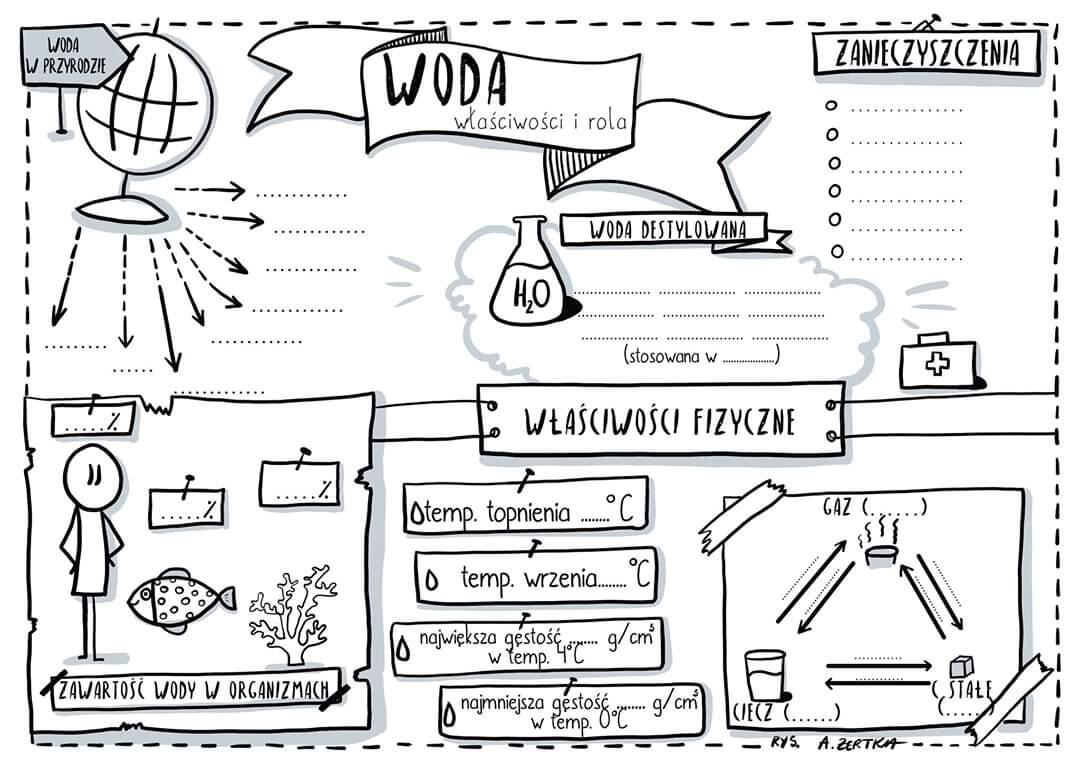 WODA
W PRZYRODZIE
WODA
właściwości i rola
ZANIECZYSZCZENIA
WODA DESTYLOWANA
H2O
(stosowana w ..................)
WŁAŚCIWOŚCI FIZYCZNE
.....%
.....%
.....%
ZAWARTOŚĆ WODY W ORGANIZMACH
temp. topnienia ........°C
temp. wrzenia........°C
największa gęstość ........ g/cm³
w temp. 4°C
najmniejsza gęstość ........ g/cm³
w temp. 0°C
GAZ (.......)
CIECZ (......)
C. STAŁE
(......)
RYS. A. ZERTKA